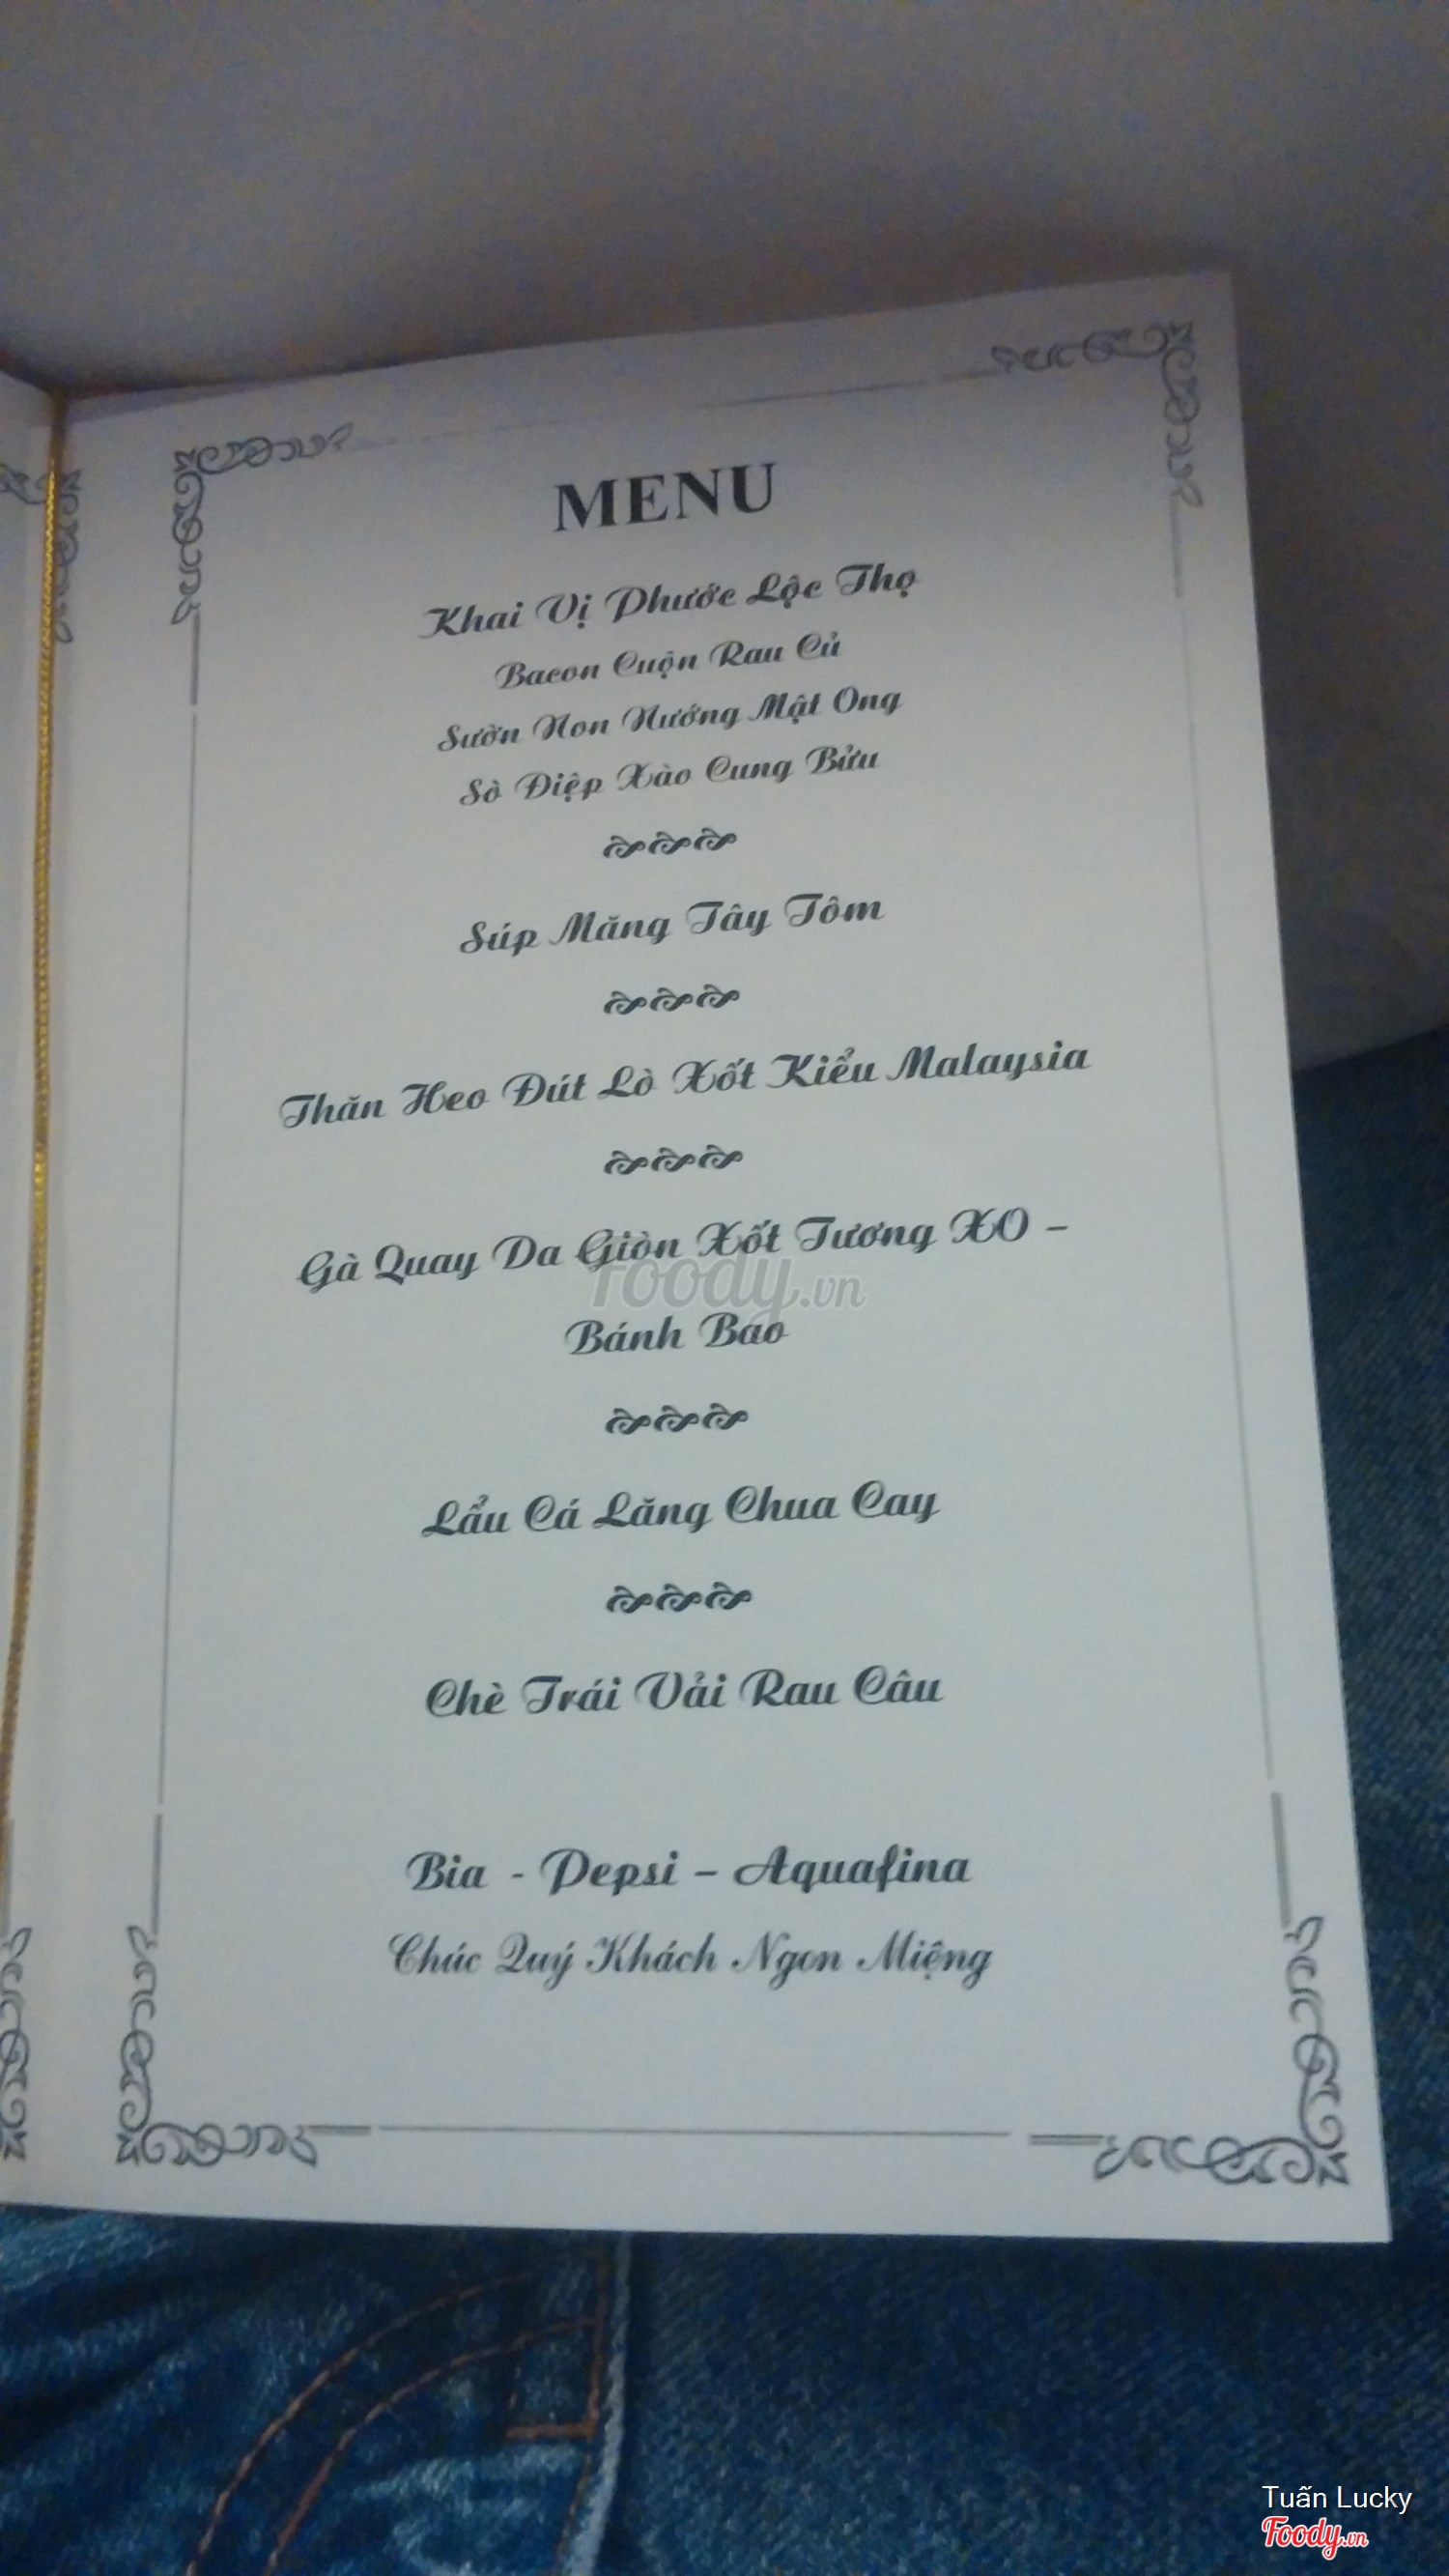 MENU
Khai Vị Phước Lộc Thọ
Bacon Cuộn Rau Củ
Sườn Non Nướng Mật Ong
Sò Điệp Xào Cung Bửu
Súp Măng Tây Tôm
Thăn Heo Đút Lò Xốt Kiểu Malaysia
Gà Quay Da Giòn Xốt Tương XO –
Bánh Bao
Lẩu Cá Lăng Chua Cay
Chè Trái Vải Rau Câu
Bia - Pepsi – Aquafina
Chúc Quý Khách Ngon Miệng
foody.vn
Tuấn Lucky
Foody.vn